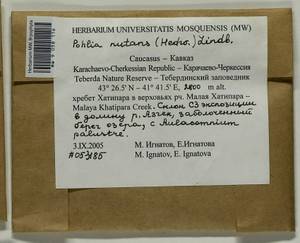 HERBARIUM UNIVERSITATIS MOSQUENSIS (MW)
Pohlia nutans (Hedw.) Lindb.
Caucasus – Кавказ
Karachaevo-Cherkessian Republic – Карачаево-Черкессия
Teberda Nature Reserve – Тебердинский заповедник
43° 26.5' N – 41° 41.5' E, 2800 m alt.
хребет Хатипара в верховьях рч. Малая Хатипара –
Malaya Khatipara Creek. Склон СЗ экспозиции
в долину р. Азгек, заболоченный
берег озера, с Aulacomnium
palustre.
3.IX.2005 М. Игнатов, Е.Игнатова
#05-3185 M. Ignatov, E. Ignatova